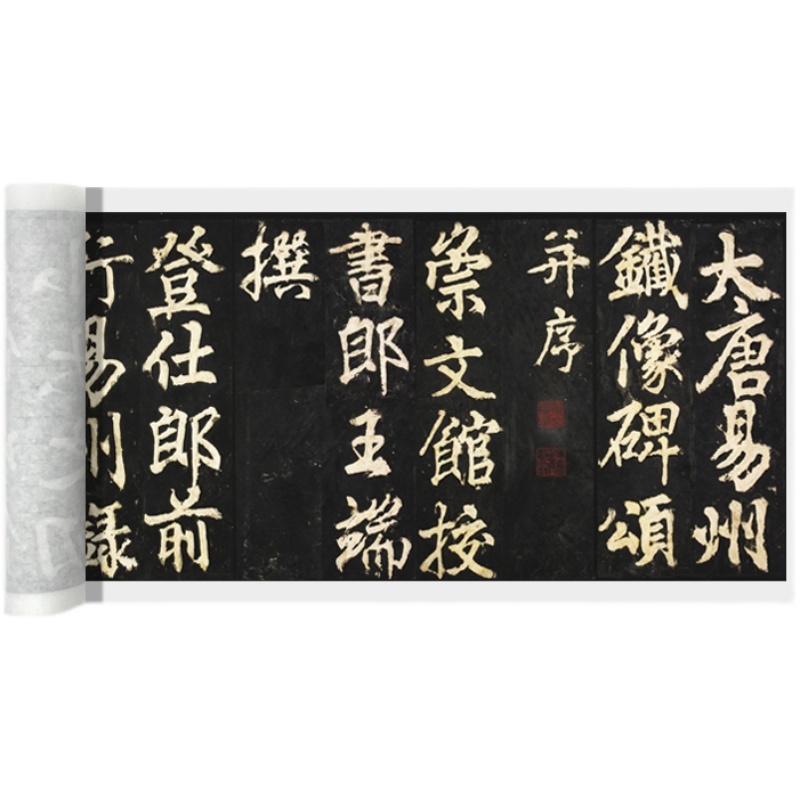 大唐易州
鐵像碑頌
并序
崇文館挍
書郎王端
撰
登仕郎前
行易州録